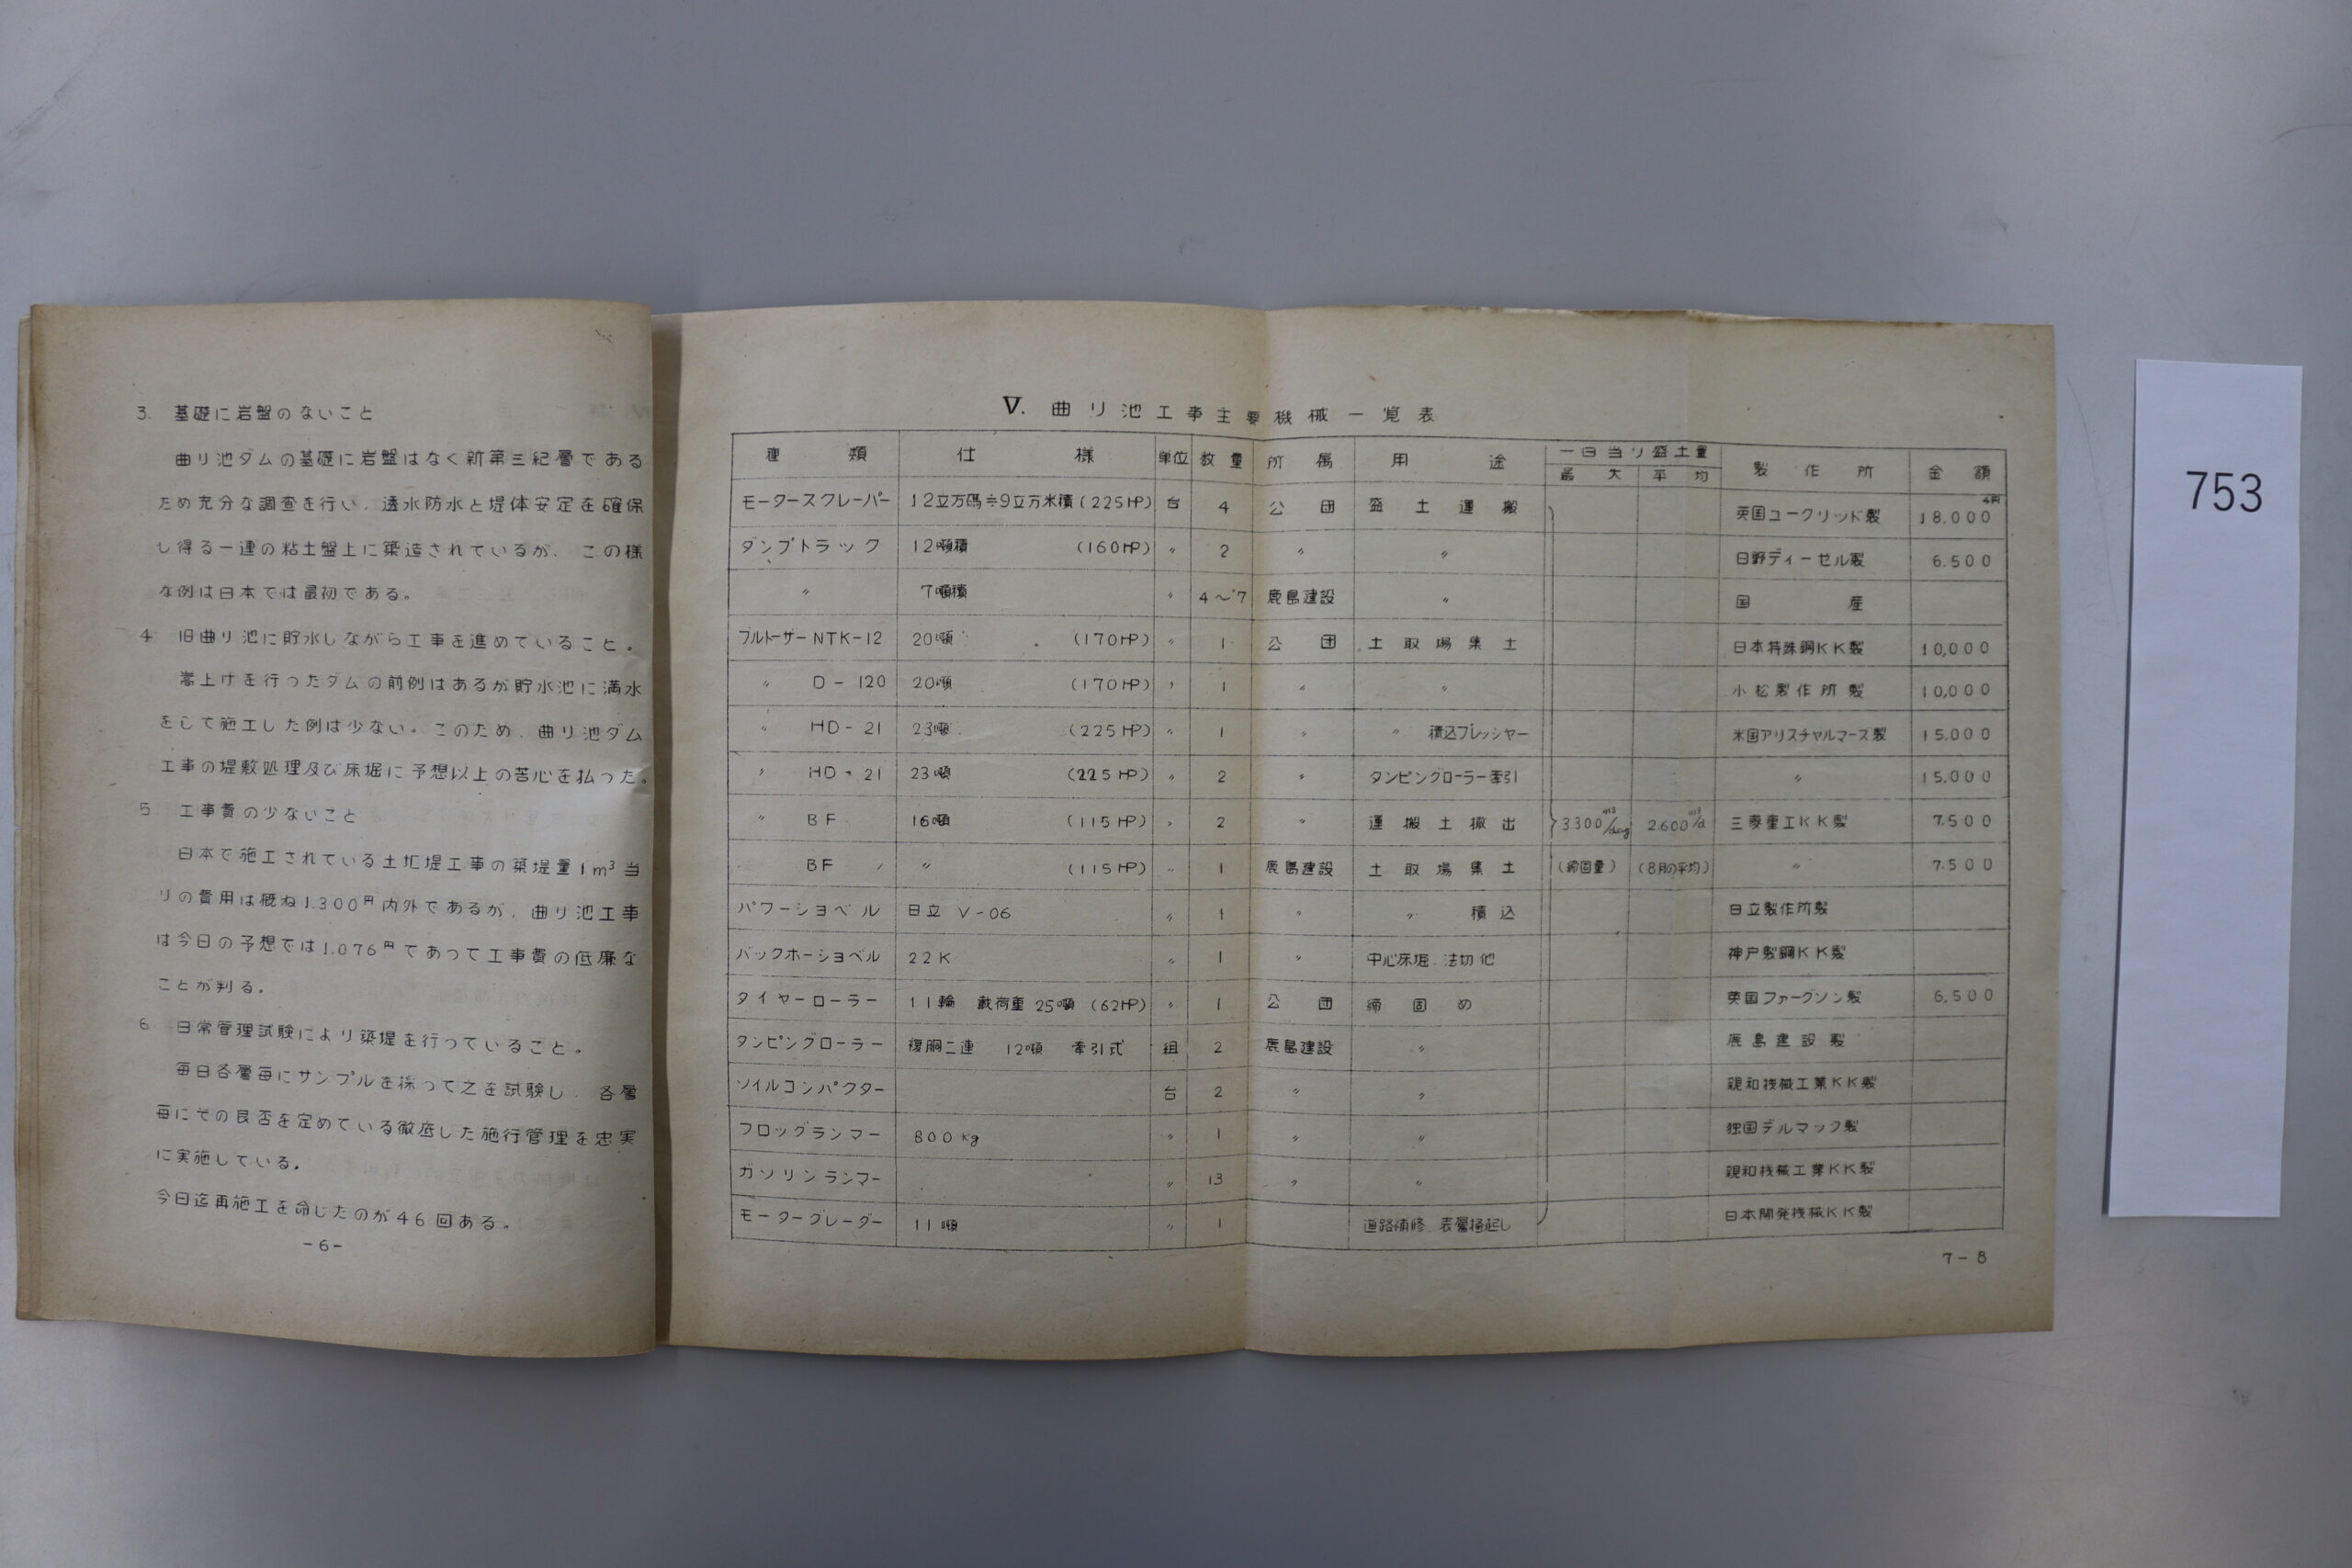 3. 基礎に岩盤のないこと
曲り池ダムの基礎に岩盤はなく新第三紀層である
ため充分な調査を行い、透水防水と堤体安定を確保
し得る一連の粘土盤上に築造されているが、この様
な例は日本では最初である。
4 旧曲り池に貯水しながら工事を進めていること。
嵩上げを行ったダムの前例はあるが貯水池に満水
をして施工した例は少ない。このため、曲り池ダム
工事の堤敷処理及び床堀に予想以上の苦心を払った。
5 工事費の少ないこと
日本で施工されている土堰堤工事の築堤量1m³当
りの費用は概ね1.300円内外であるが、曲り池工事
は今日の予想では1.076円であって工事費の低廉な
ことが判る。
6 日常管理試験により築堤を行っていること。
毎日各層毎にサンプルを採って之を試験し、各層
毎にその良否を定めている徹底した施行管理を忠実
に実施している。
今日迄再施工を命じたのが46回ある。
-6-
V. 曲り池工事主要機械一覧表
種類 仕様 単位 数量 所属 用途 一日当り盛土量 製作所 金額
最大 平均
モータースクレーパー 12立方碼≒9立方米積(225HP) 台 4 公団 盛土運搬 英国ユークリッド製 18.000千円
ダンプトラック 12噸積 (160HP) 〃 2 〃 〃 日野ディーゼル製 6.500
〃 7噸積 〃 4～7 鹿島建設 〃 国産
ブルトーザーNTK-12 20噸 (170HP) 〃 1 公団 土取場集土 日本特殊鋼KK製 10,000
〃 D-120 20噸 (170HP) 〃 1 〃 〃 小松製作所製 10,000
〃 HD-21 23噸 (225HP) 〃 1 〃 〃 積込プレッシャー 米国アリスチャルマーズ製 15.000
〃 HD-21 23噸 (225HP) 〃 2 〃 タンピングローラー牽引 〃 15.000
〃 BF 16噸 (115HP) 〃 2 〃 運搬土撒出 3300m³/day 2600m³/d 三菱重工KK製 7.500
BF 〃 (115HP) 〃 1 鹿島建設 土取場集土 (締固量) (8月の平均) 〃 7.500
パワーショベル 日立 V-06 〃 1 〃 〃 積込 日立製作所製
バックホーショベル 22K 〃 1 〃 中心床堀 法切他 神戸製鋼KK製
タイヤーローラー 11輪 載荷重 25噸 (62HP) 〃 1 公団 締固め 英国ファーグソン製 6,500
タンピングローラー 複胴二連 12噸 牽引式 組 2 鹿島建設 〃 鹿島建設製
ソイルコンパクター 台 2 〃 〃 親和機械工業KK製
フロッグランマー 800kg 〃 1 〃 〃 独国デルマック製
ガソリンランマー 〃 13 〃 〃 親和機械工業KK製
モーターグレーダー 11噸 〃 1 道路補修 表層掻起し 日本開発機械KK製
7-8
753